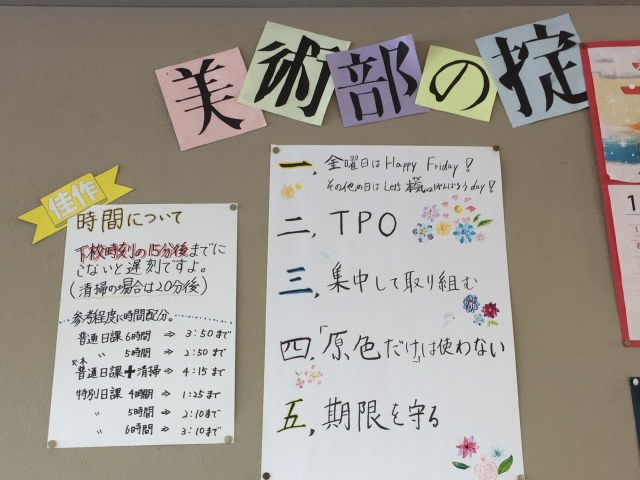 美術部の掟
佳作
時間について
下校時刻の15分後までに
こないと遅刻ですよ。
(清掃の場合は20分後)
参考程度に時間配分。
普通日課 6時間 ⇒ 3:50まで
〃 5時間 ⇒ 2:50まで
火・木
普通日課+清掃 ⇒ 4:15まで
特別日課 4時間 ⇒ 1:25まで
〃 5時間 ⇒ 2:10まで
〃 6時間 ⇒ 3:10まで
一、金曜日はHappy Friday!
その他の日は Let's がんばろう day!
二、TPO
三、集中して取り組む
四、「原色だけ」は使わない
五、期限を守る
1